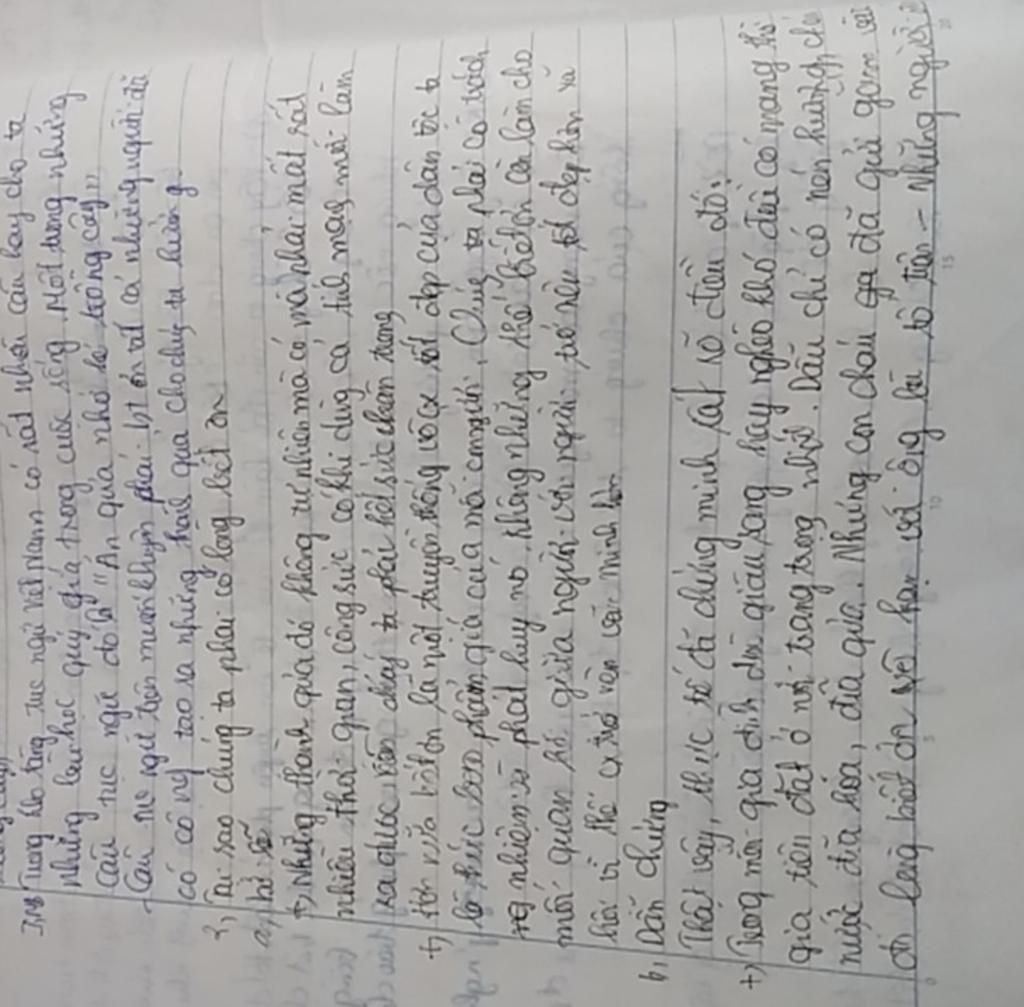 Trong kho tàng tục ngữ Việt Nam có rất nhiều câu hay cho ta
những bài học quý giá trong cuộc sống. Một trong những
câu tục ngữ đó là "Ăn quả nhớ kẻ trồng cây"
- Câu tục ngữ trên muốn khuyên phải biết ơn tất cả những người đã
có công tạo ra những thành quả cho chúng ta hưởng
2, Tại sao chúng ta phải có lòng biết ơn
a,
+) Những thành quả đó không tự nhiên mà có mà phải mất rất
nhiều thời gian, công sức có khi dùng cả tính mạng mới làm
ra được vì vậy ta phải hết sức trân trọng
+) Hơn nữa biết ơn là một truyền thống vô cx tốt đẹp của dân tộc ta
là thước đo phẩm giá của mỗi c người. Chúng ta phải có trách
nhiệm phát huy nó, không những thế biết ơn còn làm cho
mối quan hệ giữa người với người trở nên tốt đẹp hơn xã
hội vì thế cx trở nên văn minh hơn
b, Dẫn chứng
Thật vậy, thực tế đã chứng minh rất rõ điều đó:
+) Trong mỗi gia đình dù giàu sang hay nghèo khó đều có trang thờ
gia tiên đặt ở nơi trang trọng nhất. Dẫu chỉ có nén hương, chén
nước đĩa hóa, đĩa quả. Nhưng con cháu đã gửi gắm
lòng biết ơn vô hạn với ông bà tổ tiên - Những người